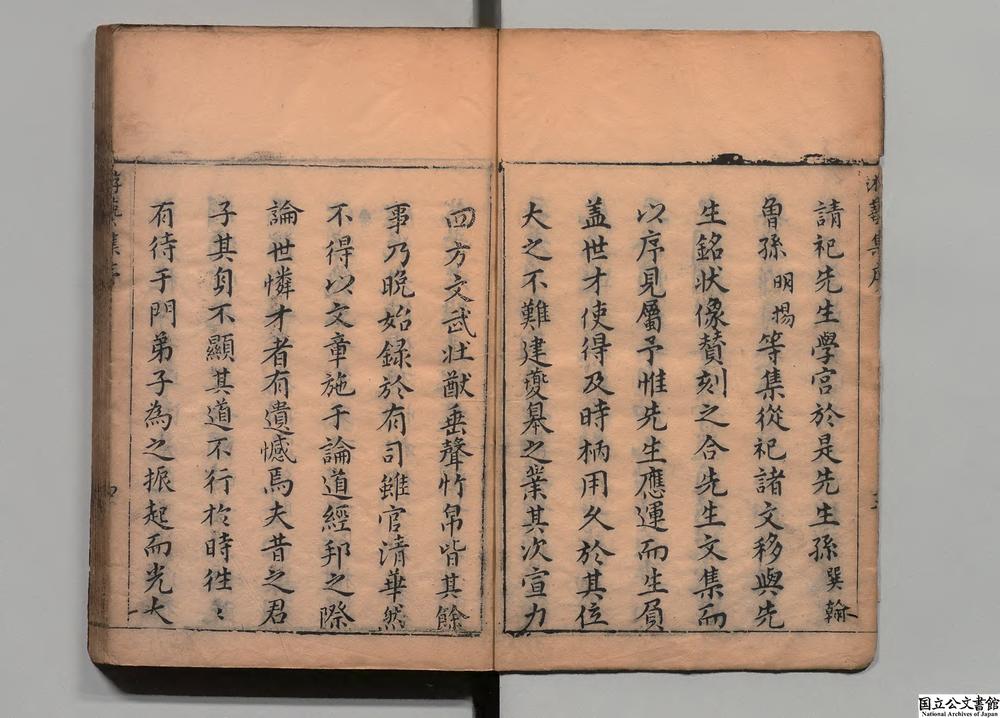 請祀先生學宮於是先生孫巽翰
曾孫明揚等集從祀諸文移與先
生銘狀像贊刻之合先生文集而
以序見屬予惟先生應運而生負
盖世才使得及時柄用久於其位
大之不難建夔皋之業其次宣力
四方文武壯猷垂聲竹帛皆其餘
事乃晚始録於有司雖官清華然
不得以文章施于論道經邦之際
論世憐才者有遺憾焉夫昔之君
子其身不顯其道不行於時徃〻
有待于門弟子為之振起而光大
国立公文書館
National Archives of Japan